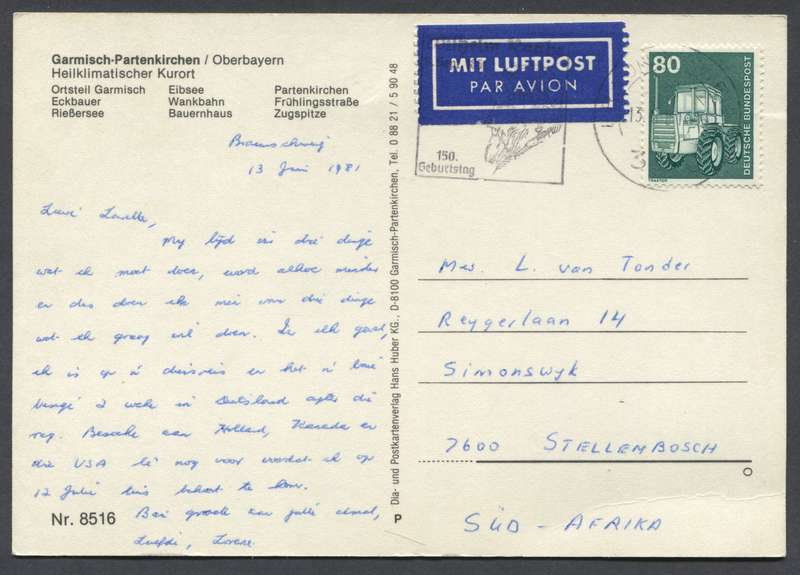 Garmisch-Partenkirchen / Oberbayern
Heilklimatischer Kurort
Ortsteil Garmisch Eibsee Partenkirchen
Eckbauer Wankbahn Frühlingsstraße
Rießersee Bauernhaus Zugspitze
Braunschweig
13 Juni 1981
Liewe
My tyd vir dié dinge
wat ek moet doen, word alhoe minder
en dus doen ek meer van dié dinge
wat ek graag wil doen. In elk geval,
ek is op 'n diensreis en het 'n
2 weke in Duitsland agter die
rug. Besoeke aan Holland, Kanada en
die USA lê nog voor voordat ek op
12 Julie tuis behoort te kom.
Baie groete aan julle almal,
Liefde,
Nr. 8516
Dia- und Postkartenverlag Hans Huber KG., D-8100 Garmisch-Partenkirchen, Tel. 0 88 21 / 5 90 48
P
MIT LUFTPOST
PAR AVION
150.
Geburtstag
80
DEUTSCHE BUNDESPOST
TRAKTOR
Mev. L. van Tonder
Reygerlaan 14
Simonswyk
7600 STELLEMBOSCH
SÜD-AFRIKA